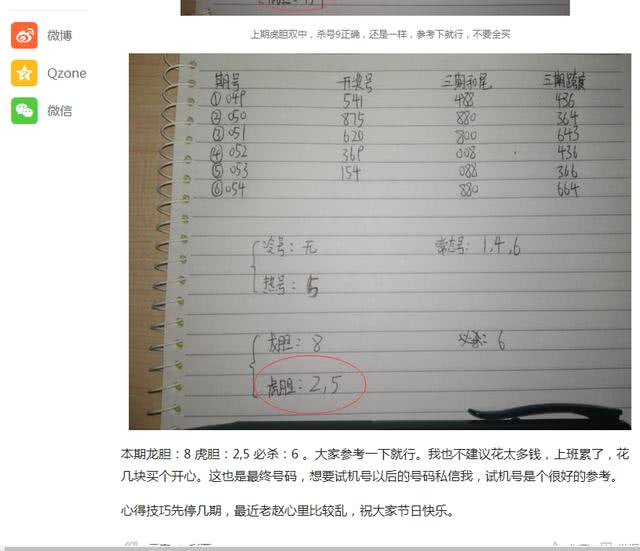 上期虎胆双中，杀号9正确，还是一样，参考下就行，不要全买
微博
Qzone
微信
期号 开奖号 三期和尾 三期跨度
①049 541 488 436
②050 875 880 364
③051 620 800 643
④052 369 008 436
⑤053 154 088 366
⑥054 880 664
冷号：无 常态号：1,4,6
热号：5
虎胆：8 必杀：6
虎胆：2,5
本期龙胆：8 虎胆：2,5 必杀：6 。大家参考一下就行。我也不建议花太多钱，上班累了，花
几块买个开心。这也是最终号码，想要试机号以后的号码私信我，试机号是个很好的参考。
心得技巧先停几期，最近老赵心里比较乱，祝大家节日快乐。